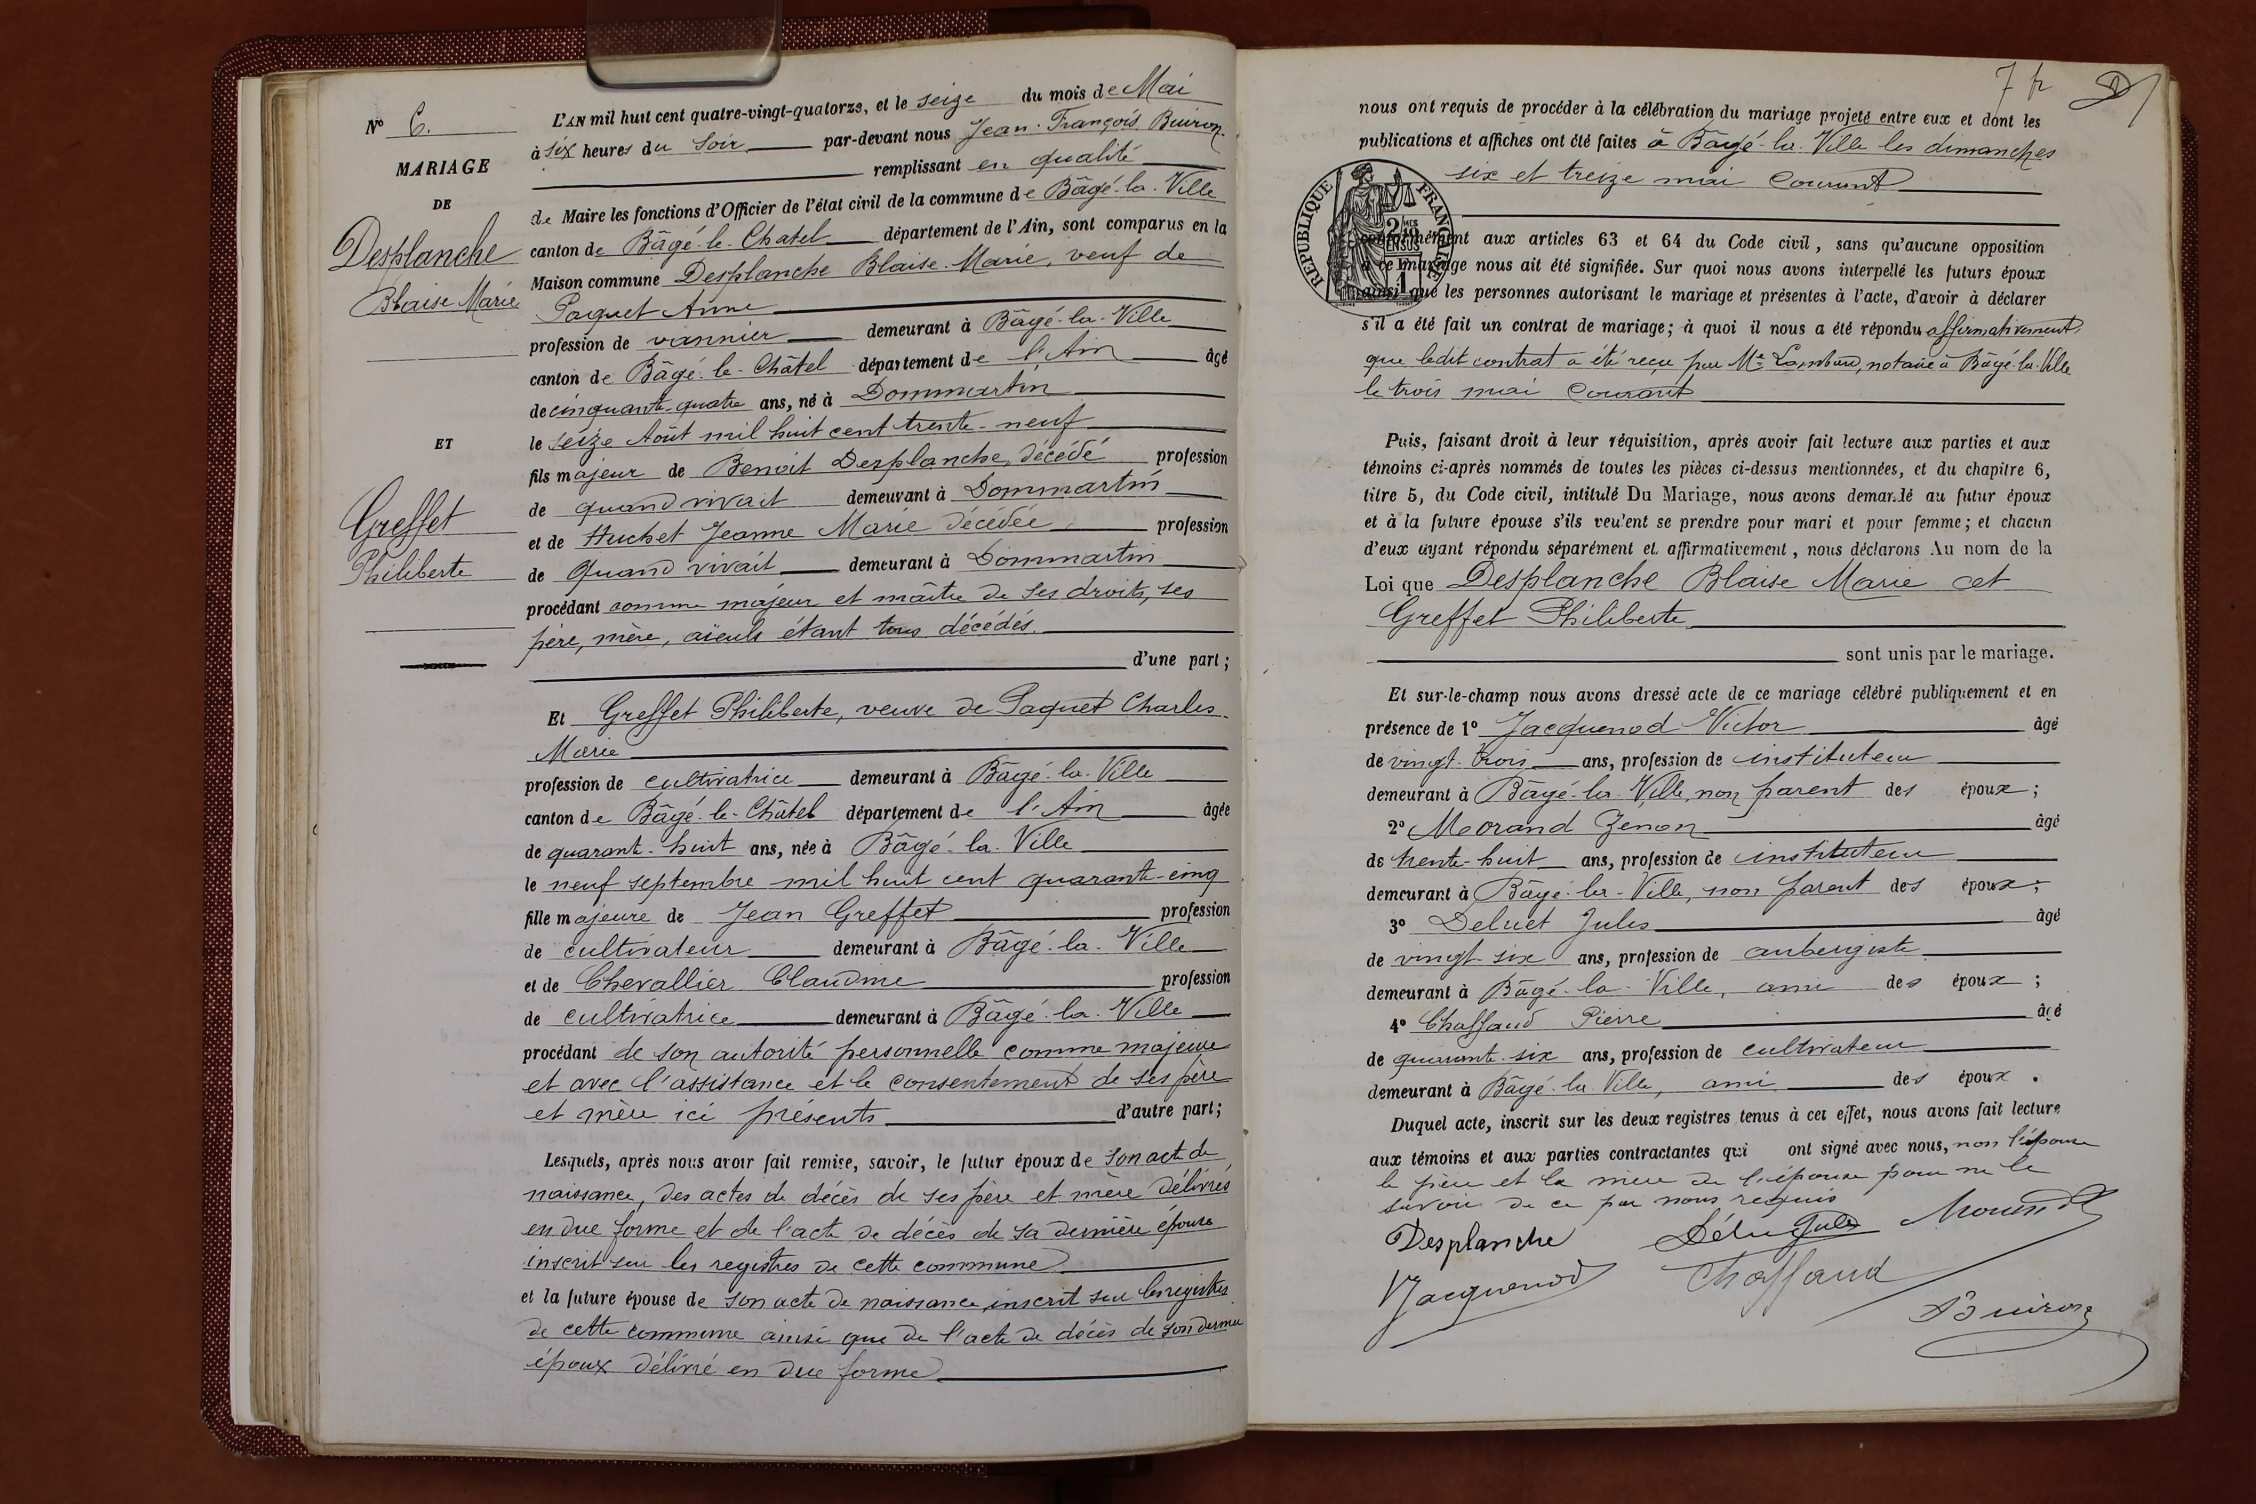 Nº 6.
MARIAGE
DE
Desplanche
Blaise Marie
ET
Greffet
Philiberte
L'AN mil huit cent quatre-vingt-quatorze, et le seize du mois de Mai
à six heures du soir par-devant nous Jean-François Buiron
remplissant en qualité
de Maire les fonctions d'Officier de l'état civil de la commune de Bâgé-la-Ville
canton de Bâgé-le-Chatel département de l'Ain, sont comparus en la
Maison commune Desplanche Blaise-Marie, veuf de
Paquet Anne
profession de vannier demeurant à Bâgé-la-Ville
canton de Bâgé-le-Châtel département de l'Ain âgé
de cinquante-quatre ans, né à Dommartin
le seize Août mil huit cent trente-neuf
fils majeur de Benoit Desplanche, décédé profession
de quand vivait demeurant à Dommartin
et de Huchet Jeanne Marie décédée profession
de quand vivait demeurant à Dommartin
procédant comme majeur et maître de ses droits, ses
père, mère, aïeuls étant tous décédés.
d'une part;
Et Greffet Philiberte, veuve de Paquet Charles-
Marie
profession de cultivatrice demeurant à Bâgé-la-Ville
canton de Bâgé-le-Châtel département de l'Ain âgée
de quarante-huit ans, née à Bâgé-la-Ville
le neuf septembre mil huit cent quarante-cinq
fille majeure de Jean Greffet profession
de cultivateur demeurant à Bâgé-la-Ville
et de Chevallier Claudine profession
de cultivatrice demeurant à Bâgé-la-Ville
procédant de son autorité personnelle comme majeure
et avec l'assistance et le consentement de ses père
et mère ici présents d'autre part;
Lesquels, après nous avoir fait remise, savoir, le futur époux de son acte de
naissance, des actes de décès de ses père et mère délivrés
en due forme et de l'acte de décès de sa dernière épouse
inscrit sur les registres de cette commune
et la future épouse de son acte de naissance inscrit sur les registres
de cette commune ainsi que de l'acte de décès de son dernier
époux délivré en due forme
7 fr
nous ont requis de procéder à la célébration du mariage projeté entre eux et dont les
publications et affiches ont été faites à Bâgé-la-Ville les dimanches
six et treize mai courant
RÉPUBLIQUE FRANÇAISE
2/10 MES EN SUS
1
conformément aux articles 63 et 64 du Code civil, sans qu'aucune opposition
à ce mariage nous ait été signifiée. Sur quoi nous avons interpellé les futurs époux
ainsi que les personnes autorisant le mariage et présentes à l'acte, d'avoir à déclarer
s'il a été fait un contrat de mariage; à quoi il nous a été répondu affirmativement,
que ledit contrat a été reçu par Me Lombard, notaire à Bâgé-la-Ville
le trois mai courant
Puis, faisant droit à leur réquisition, après avoir fait lecture aux parties et aux
témoins ci-après nommés de toutes les pièces ci-dessus mentionnées, et du chapitre 6,
titre 5, du Code civil, intitulé Du Mariage, nous avons demandé au futur époux
et à la future épouse s'ils veulent se prendre pour mari et pour femme; et chacun
d'eux ayant répondu séparément et affirmativement, nous déclarons Au nom de la
Loi que Desplanche Blaise Marie et
Greffet Philiberte
sont unis par le mariage.
Et sur-le-champ nous avons dressé acte de ce mariage célébré publiquement et en
présence de 1º Jacquenod Victor âgé
de vingt-trois ans, profession de instituteur
demeurant à Bâgé-la-Ville, non parent des époux;
2º Morand Zenon âgé
de trente-huit ans, profession de instituteur
demeurant à Bâgé-la-Ville, non parent des époux;
3º Deluet Jules âgé
de vingt-six ans, profession de aubergiste
demeurant à Bâgé-la-Ville, ami des époux;
4º Chaffaud Pierre âgé
de quarante-six ans, profession de cultivateur
demeurant à Bâgé-la-Ville, ami des époux.
Duquel acte, inscrit sur les deux registres tenus à cet effet, nous avons fait lecture
aux témoins et aux parties contractantes qui ont signé avec nous, non l'épouse
le père et la mère de l'épouse pour ne le
savoir de ce par nous requis
Desplanche Jules Morand
Jacquenod Chaffaud
Buiron